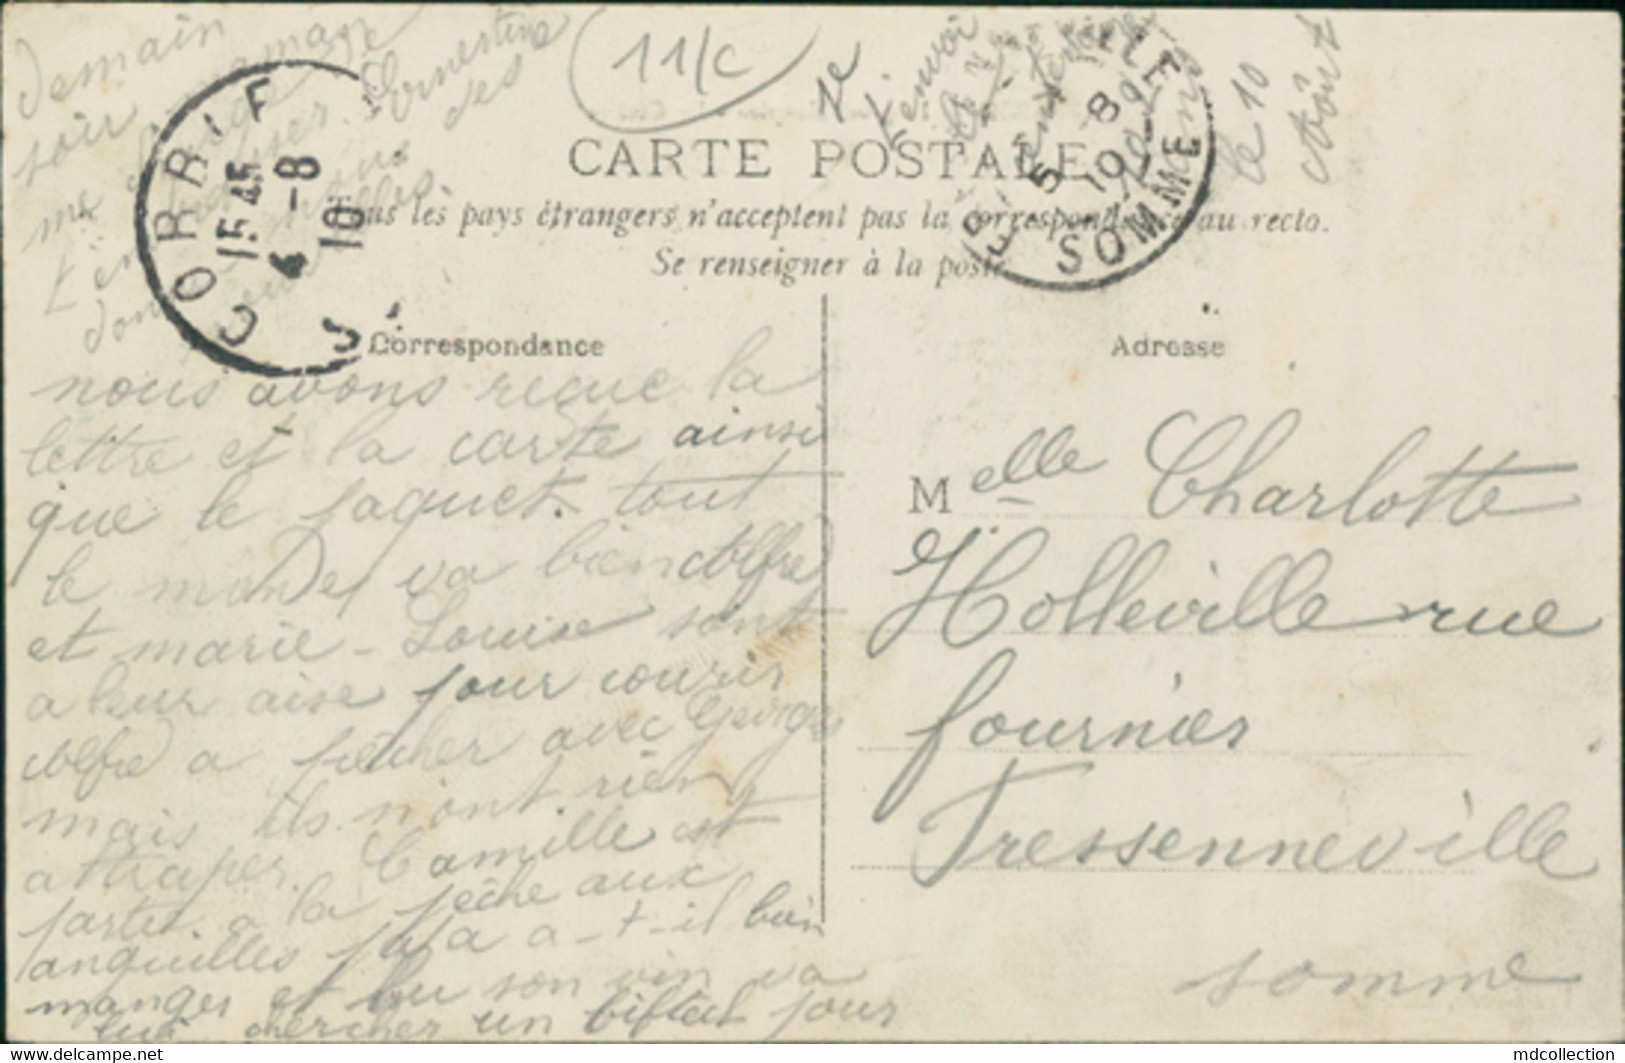 11/c
CARTE POSTALE
Tous les pays étrangers n'acceptent pas la correspondance au recto.
Se renseigner à la poste
CORRIF
15 45
4 -8
10
5 -8
10
SOMME
le 10
Août
Correspondance
nous avons reçue la
lettre et la carte ainsi
que le paquet. tout
le monde va bien Alfre
et marie-Louise sont
a leur aise pour courir
Alfre a pêcher avec Georges
mais ils n'ont rien
attraper. Camille est
partie a la pêche aux
anguilles papa a-t-il bien
manger et bu son vin va
lui chercher un bifteck pour
demain
soir
Ernestine
des
Adresse
Melle Charlotte
Holleville rue
fournier
Fressenneville
somme
mdcollection
www.delcampe.net